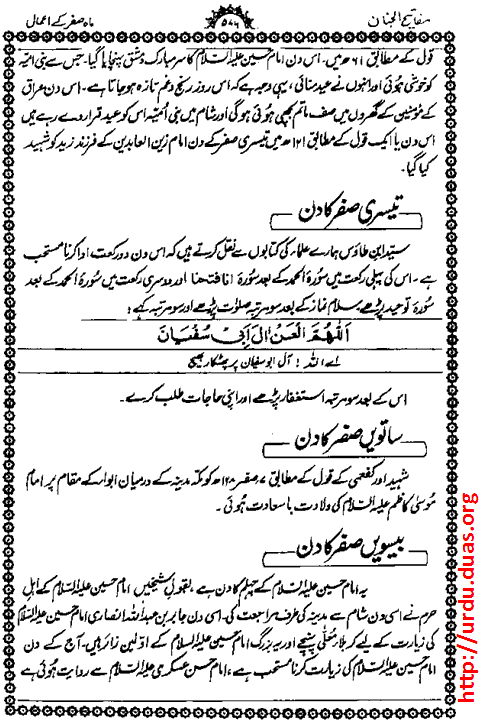 مفاتیح الجنان
۵۷۶
ماہ صفر کے اعمال
قول کے مطابق ۶۱ھ میں۔ اس دن امام حسین علیہ السلام کا سر مبارک دمشق پہنچایا گیا۔ جس سے بنی امیہ
کو خوشی ہوئی اور انہوں نے عید منائی، یہی وجہ ہے کہ اس روز رنج و غم تازہ ہو جاتا ہے۔ اس دن عراق
کے مومنین کے گھروں میں صف ماتم بچھی ہوئی ہوگی اور شام میں بنی امیہ اس کو عید قرار دے رہے ہیں
اس دن یا ایک قول کے مطابق ۱۲۱ھ میں تیسری صفر کے دن امام زین العابدین کے فرزند زید کو شہید
کیا گیا۔
تیسری صفر کا دن
سید ابن طاؤس ہمارے علماء کی کتابوں سے نقل کرتے ہیں کہ اس دن دو رکعت ادا کرنا مستحب
ہے۔ اس کی پہلی رکعت میں سورۂ الحمد کے بعد سورۂ انا فتحنا اور دوسری رکعت میں سورۂ الحمد کے بعد
سورۂ توحید پڑھے، سلام نماز کے بعد سو مرتبہ صلوٰت پڑھے اور سو مرتبہ کہے:
اَللّٰهُمَّ الْعَنْ اٰلَ اَبِیْ سُفْیَانَ
اے اللہ! آل ابو سفیان پر پھٹکار بھیج
اس کے بعد سو مرتبہ استغفار پڑھے اور اپنی حاجات طلب کرے۔
ساتویں صفر کا دن
شہید اور کفعمی کے قول کے مطابق ۷ صفر ۱۲۸ھ کو مکہ مدینہ کے درمیان ابواء کے مقام پر امام
موسیٰ کاظم علیہ السلام کی ولادت با سعادت ہوئی۔
بیسویں صفر کا دن
یہ امام حسین علیہ السلام کے چہلم کا دن ہے، بقول شیخین امام حسین علیہ السلام کے اہل
حرم نے اسی دن شام سے مدینہ کی طرف مراجعت کی۔ اسی دن جابر بن عبد اللہ انصاری امام حسین علیہ السلام
کی زیارت کے لیے کربلا معلّٰی پہنچے اور یہ بزرگ امام حسین علیہ السلام کے اوّلین زائر ہیں، آج کے دن
امام حسین علیہ السلام کی زیارت کرنا مستحب ہے، امام حسن عسکری علیہ السلام سے روایت ہوئی ہے
http://urdu.duas.org